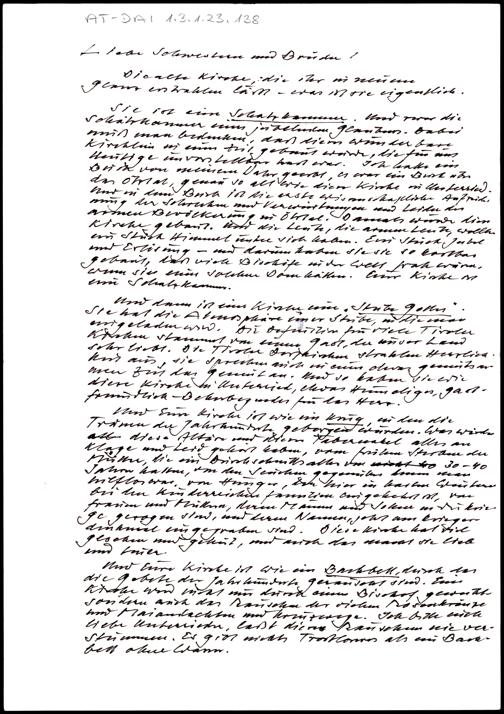 AT-DAI 1.3.1.23.128
Liebe Schwestern und Brüder!
Die alte Kirche, die ihr in neuem
Glanz erstrahlen läßt – was ist sie eigentlich.
Sie ist eine Schatzkammer. Und zwar die
Schatzkammer eines jubelnden Glaubens. Dabei
muß man bedenken, daß dieses wunderbare
Kirchlein in einer Zeit gebaut wurde, die für uns
Heutige unvorstellbar hart war. Ich habe ein
Buch von meinem Vater geerbt, es war ein Buch über
das Ötztal, genau so alt wie diese Kirche in Unterried.
Und in dem Buch ist die erste wissenschaftliche Aufzeich-
nung der Schrecken und Verwüstungen und Leiden der
armen Bevölkerung im Ötztal. Damals wurde diese
Kirche gebaut. Und die Leute, die armen Leute, wollten
ein Stück Himmel unter sich haben. Ein Stück Jubel
und Erlösung – und darum haben sie sie so kostbar
gebaut, daß viele Bischöfe in der Welt froh wären,
wenn sie so einen solchen Dom hätten. Eure Kirche ist
eine Schatzkammer.
Und dann ist eine Kirche eine "Stube Gottes".
Sie hat die Atmosphäre einer Stube, in die man
eingeladen wird. Die Definition für viele Tiroler
Kirchen stammt von einem Gast, der unser Land
sehr liebt. Die Tiroler Dorfkirchen strahlen Herrlich-
keit aus, sie sprechen auch in einem etwas gemütsar-
men Zeit das Gemüt an. Und so haben sie wie
diese Kirche in Unterried, etwas Heimeliges, gast-
freundlich-Beherbergendes für das Herz.
Und Eure Kirche ist wie ein Krug, in den die
Tränen der Jahrhunderte geborgen wurden. Was werden
diese Altäre und dieser Tabernakel alles an
Klage und Leid gehört haben, vom frühen Sterben der
Mütter, die ein Durchschnittsalter von 30-40
Jahren hatten, von den Seuchen gegenüber denen man
hilflos war, von Hunger, der hier in harten Wintern
bei den kinderreichen Familien eingekehrt ist, von
Frauen und Müttern, deren Männer und Söhne in die Krie-
ge gezogen sind, und deren Namen jetzt am Krieger-
denkmal eingegraben sind. Diese Kirche hat viel
gesehen und gehört, und auch das macht sie lieb
und teuer.
Und Eure Kirche ist wie ein Bachbett, durch das
die Gebete der Jahrhunderte gerauscht sind. Eine
Kirche wird nicht nur durch einen Bischof geweiht
sondern auch das Rauschen der vielen Rosenkränze
und Maiandachten und Kreuzwege. Ich bitte euch
liebe Unterrieder, laßt dieses Rauschen nie ver-
stummen. Es gibt nichts Trostloseres als ein Bach-
bett ohne Wasser.